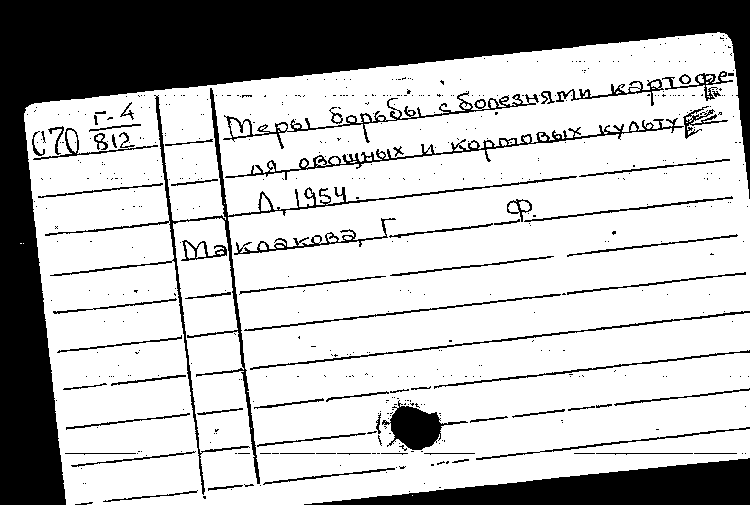 С70 Г-4
812
Меры борьбы с болезнями картофе-
ля, овощных и кормовых культур
Л., 1954.
Маклакова, Г. Ф.